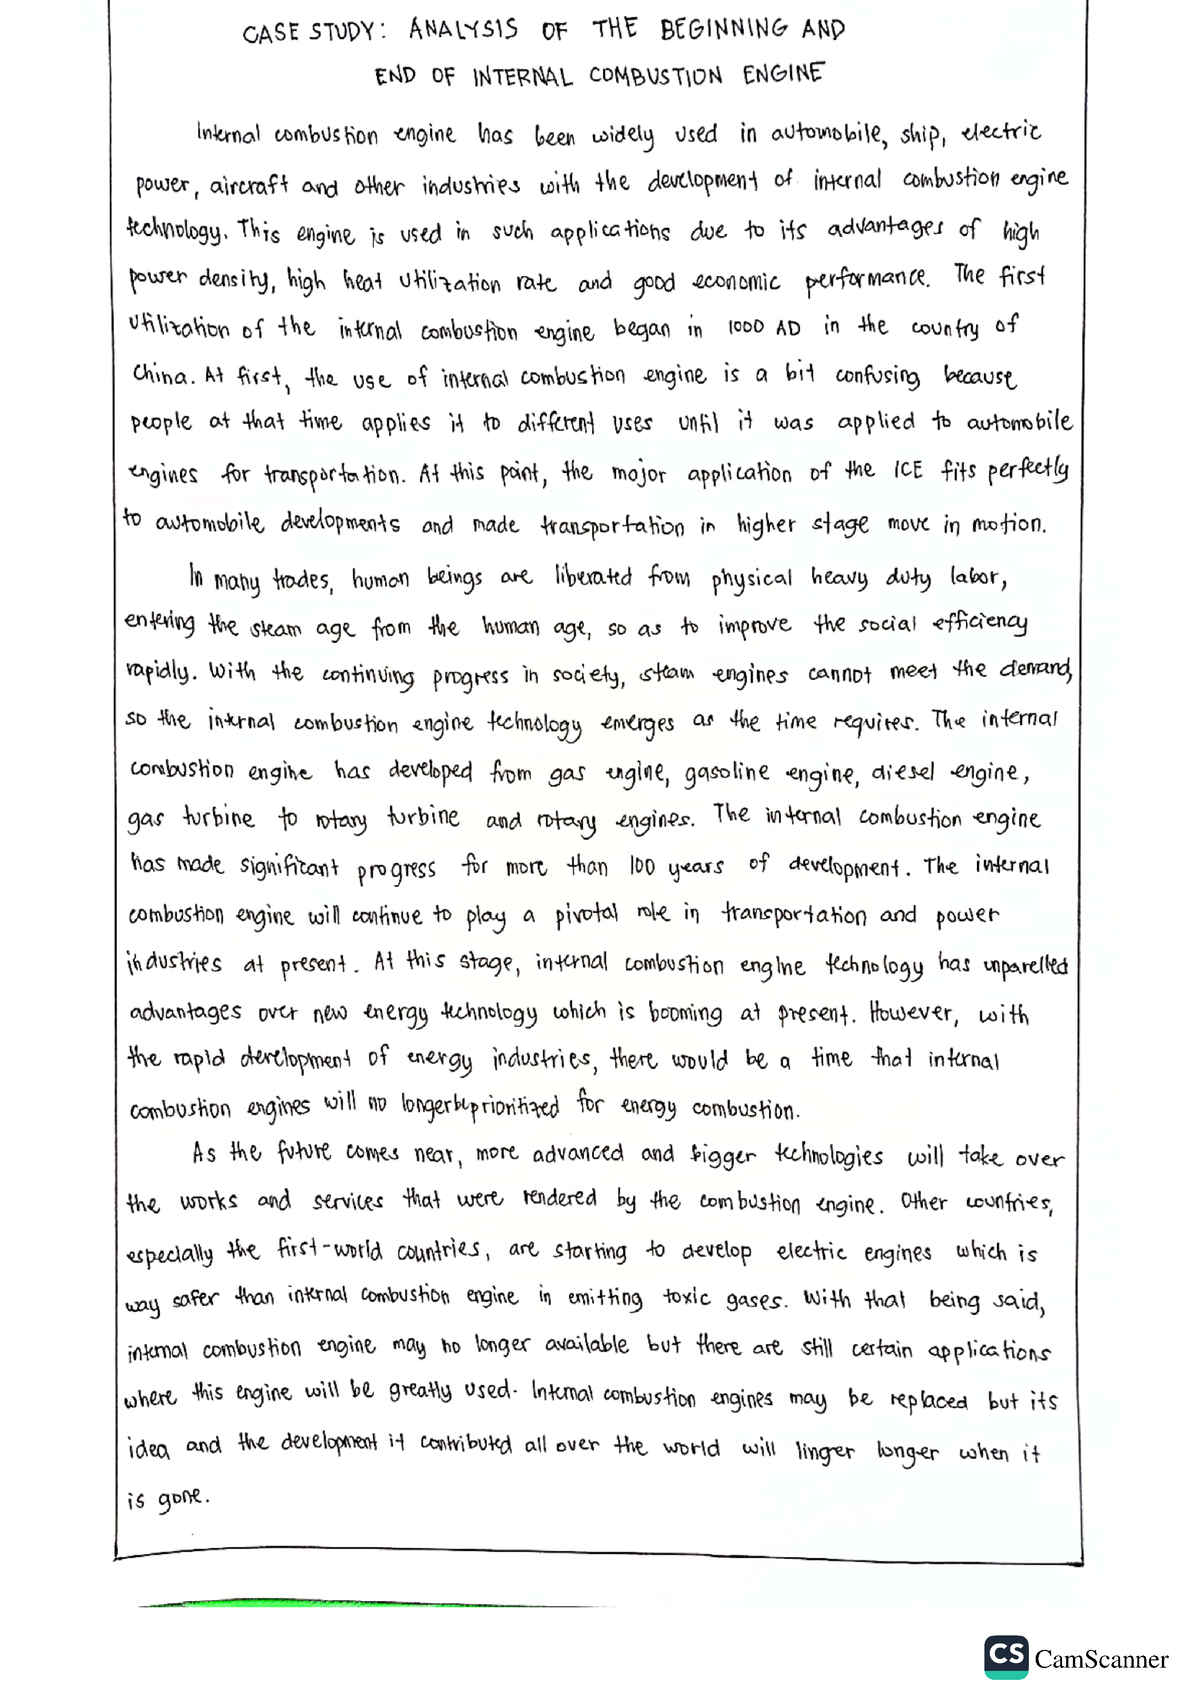 CASE STUDY: ANALYSIS OF THE BEGINNING AND
END OF INTERNAL COMBUSTION ENGINE
Internal combustion engine has been widely used in automobile, ship, electric
power, aircraft and other industries with the development of internal combustion engine
technology. This engine is used in such applications due to its advantages of high
power density, high heat utilization rate and good economic performance. The first
utilization of the internal combustion engine began in 1000 AD in the country of
China. At first, the use of internal combustion engine is a bit confusing because
people at that time applies it to different uses until it was applied to automobile
engines for transportation. At this point, the major application of the ICE fits perfectly
to automobile developments and made transportation in higher stage move in motion.
In many trades, human beings are liberated from physical heavy duty labor,
entering the steam age from the human age, so as to improve the social efficiency
rapidly. With the continuing progress in society, steam engines cannot meet the demand,
so the internal combustion engine technology emerges as the time requires. The internal
combustion engine has developed from gas engine, gasoline engine, diesel engine,
gas turbine to rotary turbine and rotary engines. The internal combustion engine
has made significant progress for more than 100 years of development. The internal
combustion engine will continue to play a pivotal role in transportation and power
industries at present. At this stage, internal combustion engine technology has unparelled
advantages over new energy technology which is booming at present. However, with
the rapid development of energy industries, there would be a time that internal
combustion engines will no longer be prioritized for energy combustion.
As the future comes near, more advanced and bigger technologies will take over
the works and services that were rendered by the combustion engine. Other countries,
especially the first-world countries, are starting to develop electric engines which is
way safer than internal combustion engine in emitting toxic gases. With that being said,
internal combustion engine may no longer available but there are still certain applications
where this engine will be greatly used. Internal combustion engines may be replaced but its
idea and the development it contributed all over the world will linger longer when it
is gone.
CS CamScanner